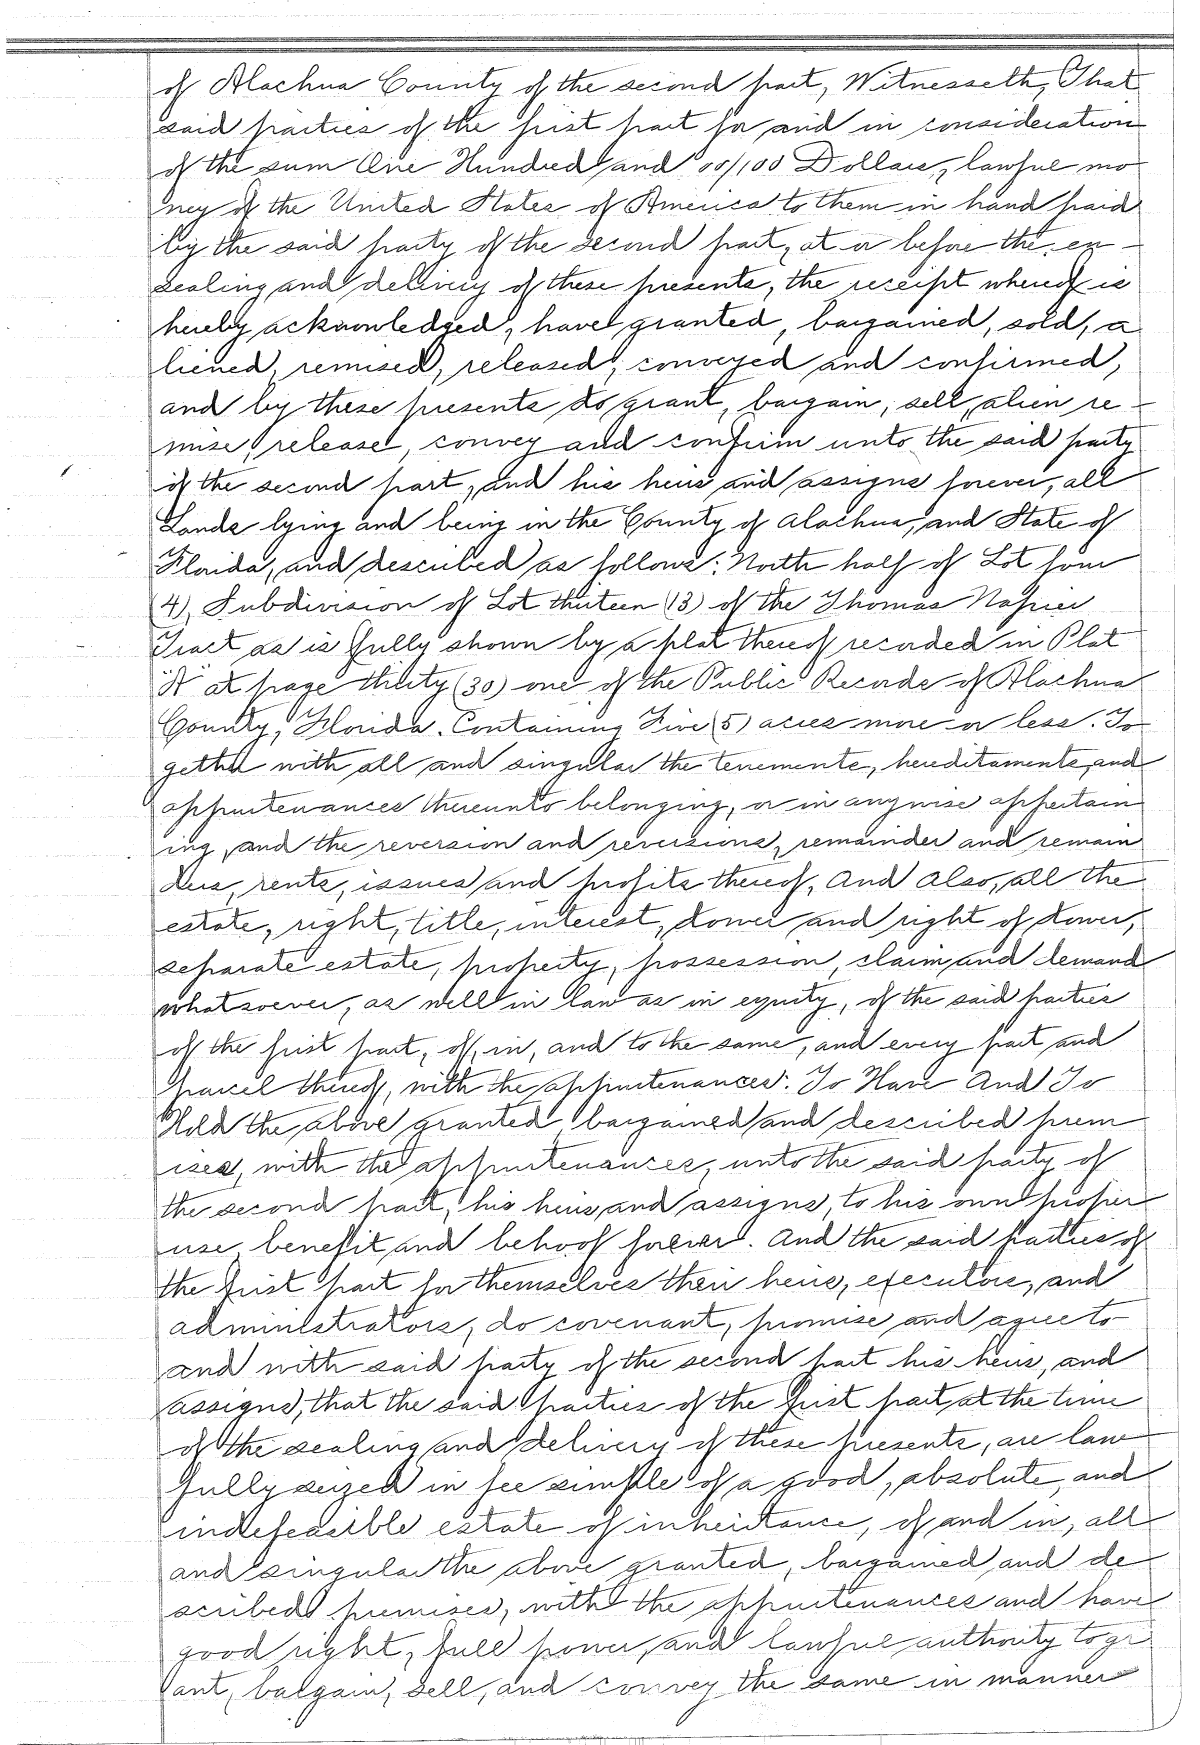 of Alachua County of the second part, Witnesseth, That
said parties of the first part for and in consideration
of the sum One Hundred and 00/100 Dollars, lawful mo
ney of the United States of America to them in hand paid
by the said party of the second part, at or before the en-
sealing and delivery of these presents, the receipt whereof is
hereby acknowledged, have granted, bargained, sold, a
liened, remised, released, conveyed and confirmed,
and by these presents do grant, bargain, sell, alien re-
mise, release, convey and confirm unto the said party
of the second part, and his heirs and assigns forever, all
Lands lying and being in the County of Alachua, and State of
Florida, and described as follows: North half of Lot four
(4), Subdivision of Lot thirteen (13) of the Thomas Napier
Tract as is fully shown by a plat thereof recorded in Plat
"A" at page thirty (30) one of the Public Records of Alachua
County, Florida. Containing Five (5) acres more or less. To
gether with all and singular the tenements, hereditaments, and
appurtenances thereunto belonging, or in anywise appertain
ing, and the reversion and reversions, remainder and remain
ders, rents, issues and profits thereof, And also, all the
estate, right, title, interest, dower and right of dower,
separate estate, property, possession, claim and demand
whatsoever, as well in law as in equity, of the said parties
of the first part, of, in, and to the same, and every part and
parcel thereof, with the appurtenances: To Have And To
Hold the above granted, bargained and described prem
ises, with the appurtenances, unto the said party of
the second part, his heirs and assigns, to his own proper
use, benefit and behoof forever. And the said parties of
the first part for themselves their heirs, executors, and
administrators, do covenant, promise and agree to
and with said party of the second part his heirs, and
assigns, that the said parties of the first part, at the time
of the sealing and delivery of these presents, are law
fully seized in fee simple of a good, absolute, and
indefeasible estate of inheritance, of and in, all
and singular the above granted, bargained and de
scribed premises, with the appurtenances and have
good right, full power, and lawful authority to gr
ant, bargain, sell, and convey the same in manner